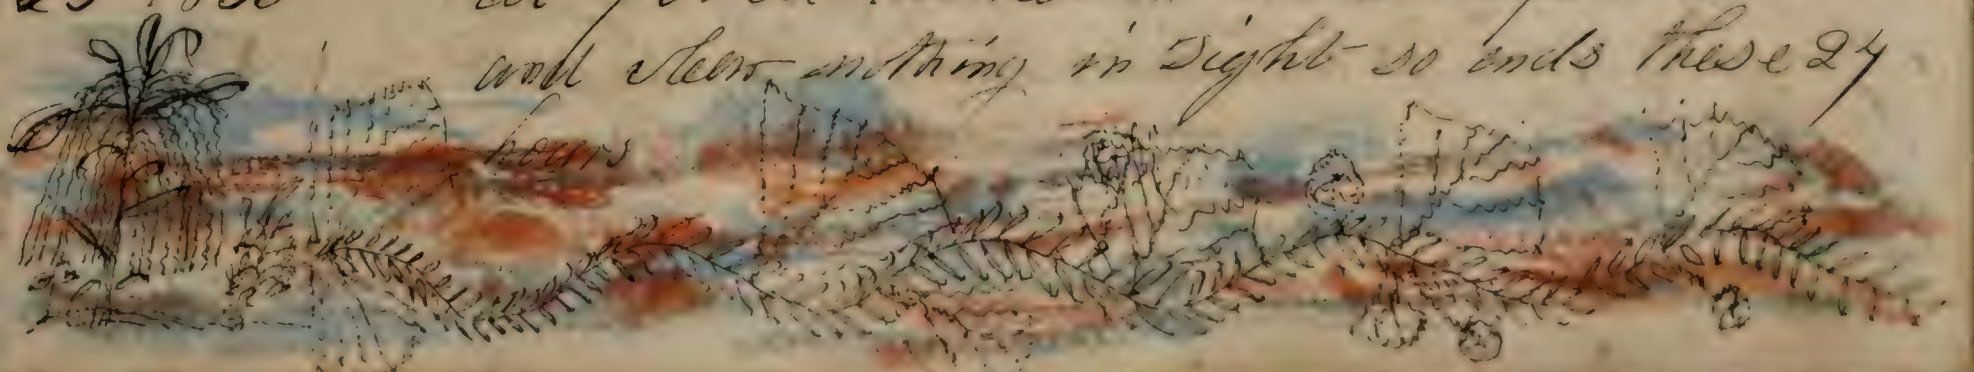 and Clear nothing in sight so ends these 24
hours